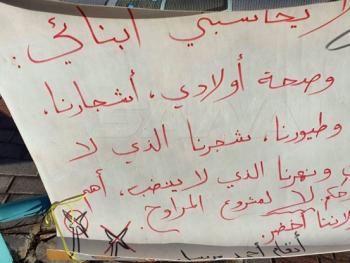 لا يحاسبني أبنائي:
وصحة أولادي، أشجارنا،
وطيورنا، شجرنا الذي لا
ونهرنا الذي لا ينضب، أهم
لا لمشروع المراوح
لأننا أخضر.
أحمد